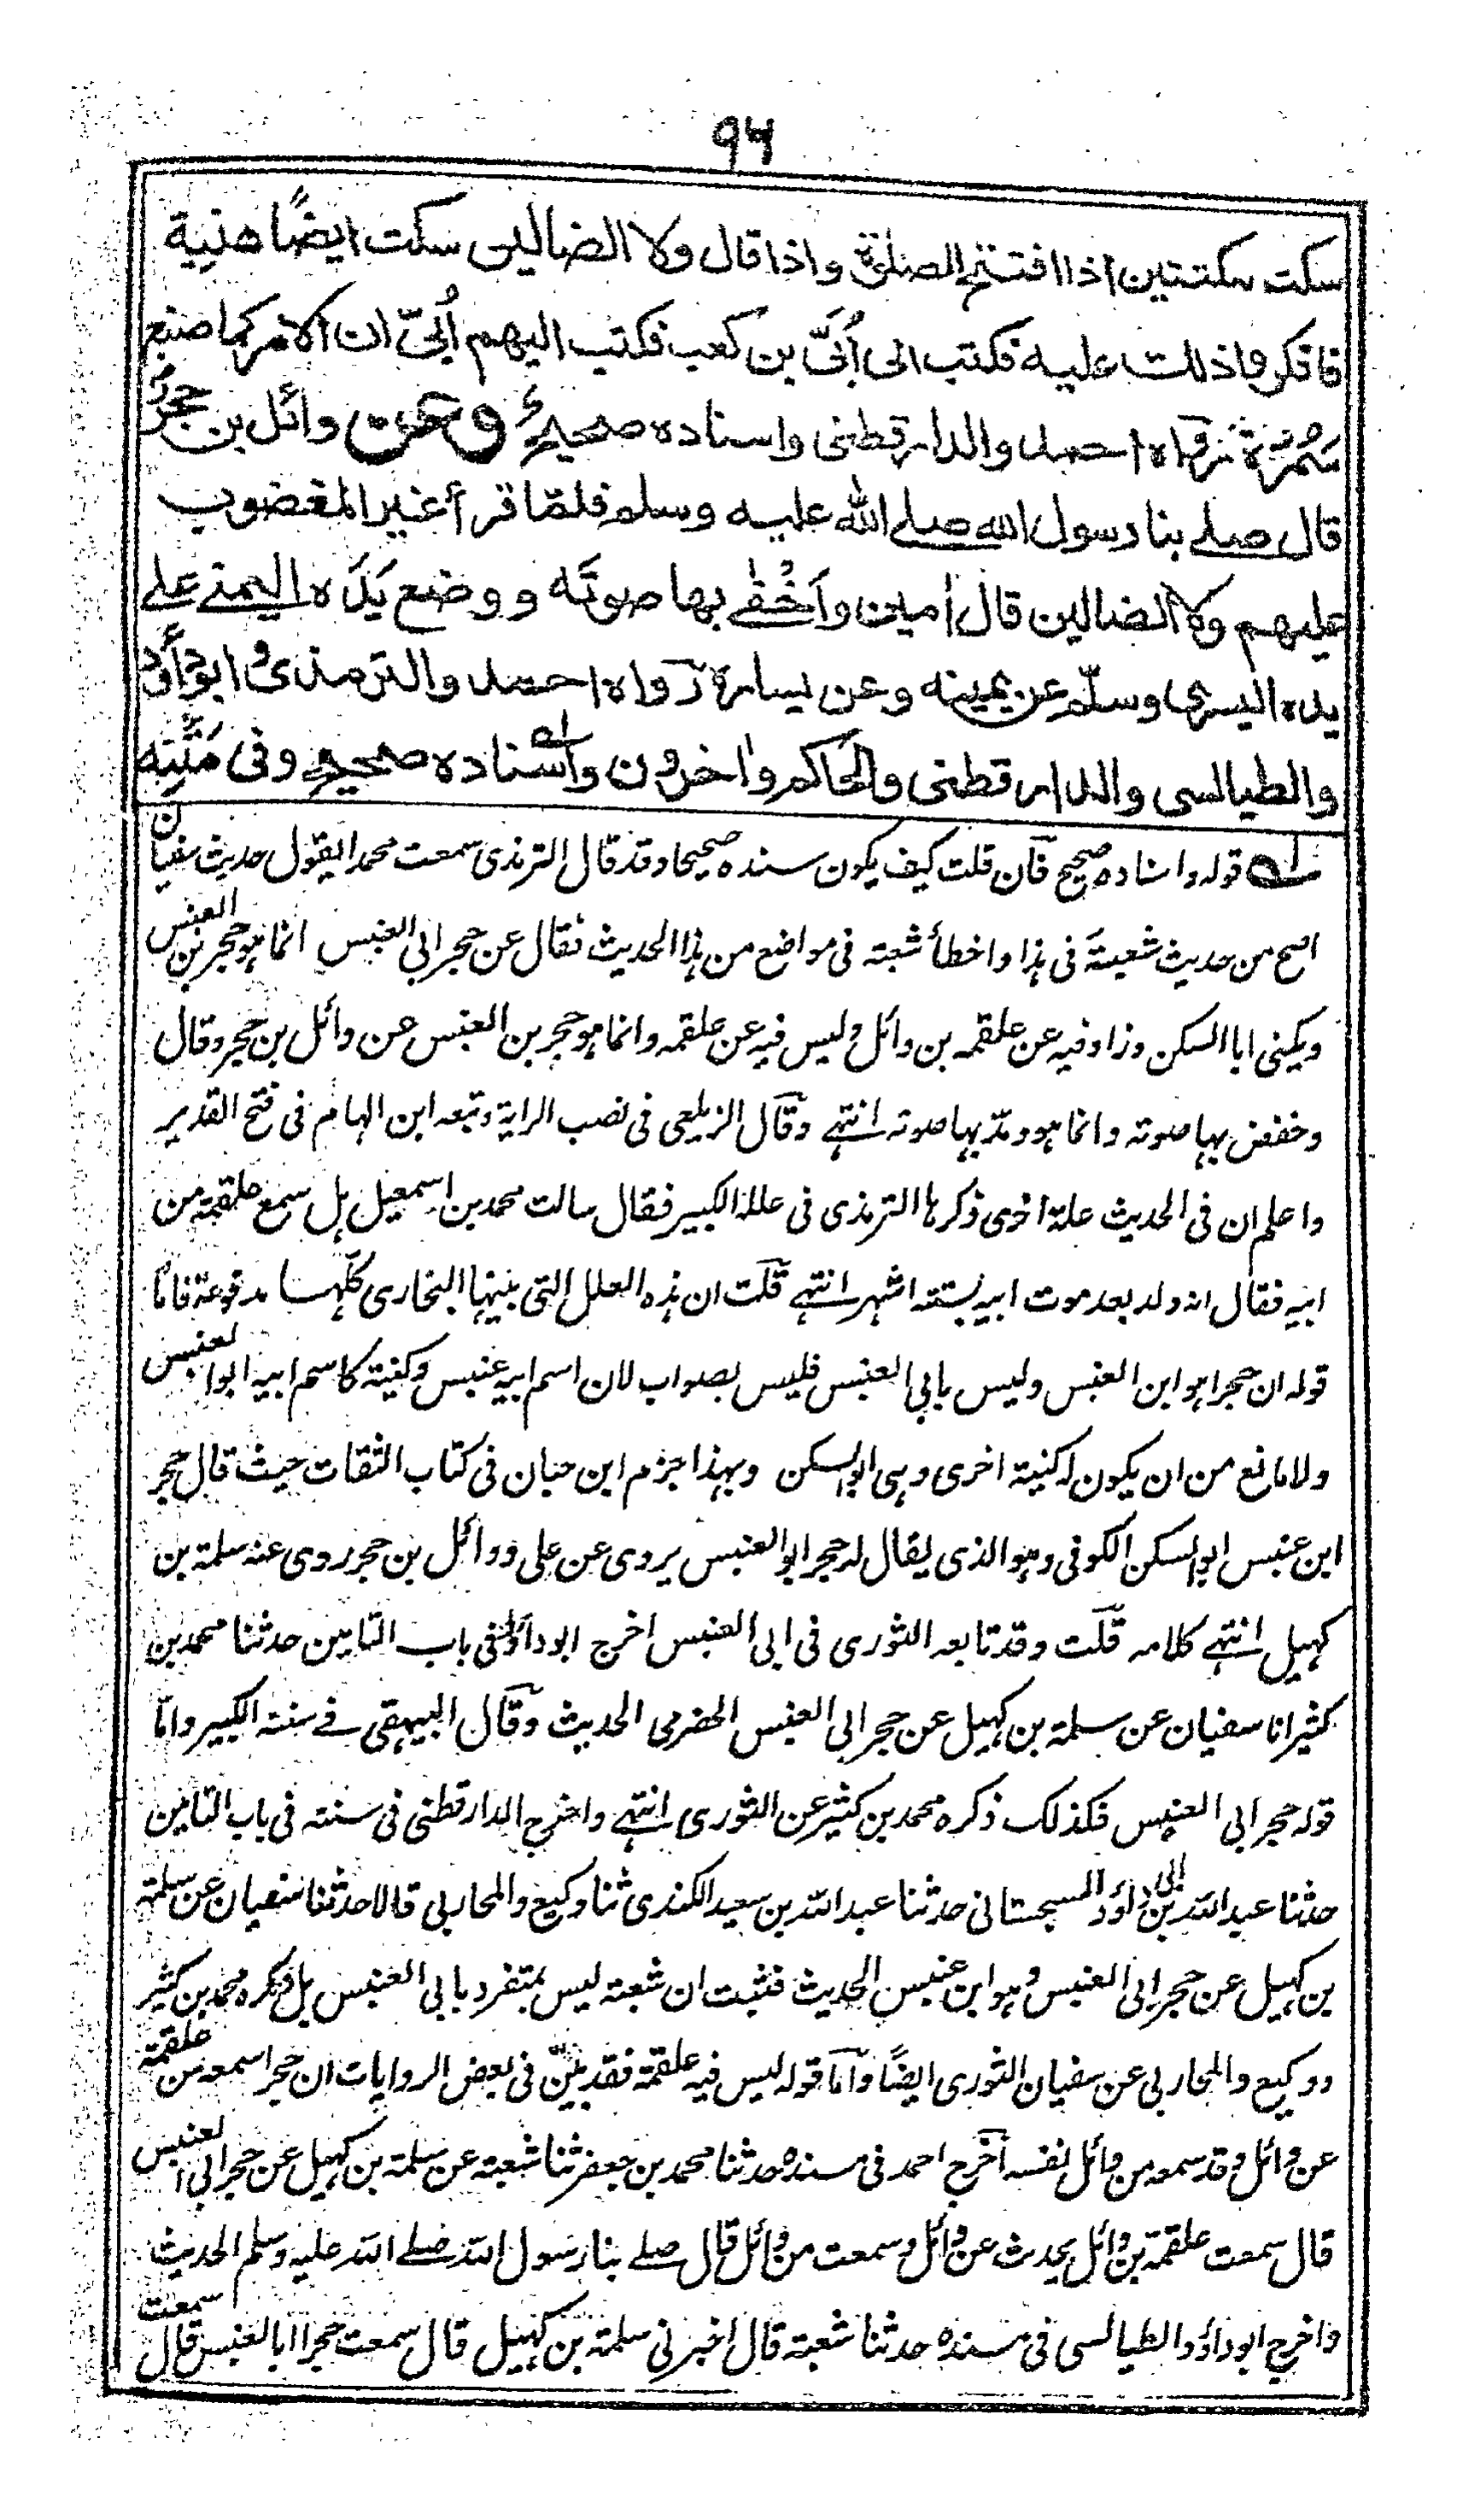 ۹۶
سكت سكتتين اذا افتتح الصلوٰة واذا قال ولا الضالين سكت ايضًا هنية
فانكروا ذلك عليه فكتب الى اُبَىّ بن كعب فكتب اليهم اُبىّ ان الامر كما صنع
سَمُرَةُ رَوَاه احمد والدارقطنى واسناده صحيح وعن وائل بن حجرٌ
قال صلے بنا رسول الله صلے الله عليه وسلم فلمّا قرأ غير المغضوب
عليهم ولا الضالين قال اٰمين واَخْفٰے بها صوتَه ووضع يَدَه اليمنے علے
يده اليسرى وسلّم عن يمينه وعن يساره رَوَاه احمد والترمذى وابوداؤد
والطيالسى والدارقطنى والحاكم واٰخرون واسناده صحيح وفى مَتْنِه
له قوله واسناده صحيح فان قلت كيف يكون سنده صحيحا وقد قال الترمذى سمعت محمدا يقول حديث سفيان
اصح من حديث شعبة فى هذا واخطأ شعبة فى مواضع من هذا الحديث فقال عن حجر ابى العنبس انما هو حجر بن العنبس
ويكنى ابا السكن وزاد فيه عن علقمه بن وائل وليس فيه عن علقمه وانما هو حجر بن العنبس عن وائل بن حجر وقال
وخفض بها صوته وانما هو ومدّ بها صوته انتهے وقال الزيلعى فى نصب الراية وتبعه ابن الهمام فى فتح القدير
واعلم ان فى الحديث علة اخرى ذكرها الترمذى فى علله الكبير فقال سالت محمد بن اسمعيل هل سمع علقمة من
ابيه فقال انه ولد بعد موت ابيه بستة اشهر انتهے قلت ان هذه العلل التى بينها البخارى كلّها مدفوعة فامّا
قوله ان حجرا هو ابن العنبس وليس بابى العنبس فليس بصواب لان اسم ابيه عنبس وكنيته كاسم ابيه ابو العنبس
ولا مانع من ان يكون له كنية اخرى وهى ابو السكن وبهذا جزم ابن حبان فى كتاب الثقات حيث قال حجر
ابن عنبس ابو السكن الكوفى وهو الذى يقال له حجر ابو العنبس يروى عن على ووائل بن حجر روى عنه سلمة بن
كهيل انتهے كلامه قلت وقد تابعه الثورى فى ابى العنبس اخرج ابو داؤد فى باب التامين حدثنا محمد بن
كثير انا سفيان عن سلمة بن كهيل عن حجر ابى العنبس الحضرمى الحديث وقال البيهقى فے سننه الكبير وامّا
قوله حجر ابى العنبس فكذلك ذكره محمد بن كثير عن الثورى انتهے واخرج الدارقطنى فى سننه فى باب التامين
حدثنا عبد الله بن ابى داؤد السجستانى حدثنا عبد الله بن سعيد الكندى ثنا وكيع والمحاربى قالا حدثنا سفيان عن سلمة
بن كهيل عن حجر ابى العنبس وهو ابن عنبس الحديث فثبت ان شعبة ليس بمتفرد بابى العنبس بل ذكره محمد بن كثير
ووكيع والمحاربى عن سفيان الثورى ايضًا وامّا قوله ليس فيه علقمة فقد بيّن فى بعض الروايات ان حجرا سمعه من علقمة
عن وائل وقد سمعه من وائل نفسه اخرج احمد فى مسنده حدثنا محمد بن جعفر ثنا شعبة عن سلمة بن كهيل عن حجر ابى العنبس
قال سمعت علقمة بن وائل يحدث عن وائل وسمعت من وائل قال صلے بنا رسول الله صلے الله عليه وسلم الحديث
واخرج ابو داؤد الطيالسى فى مسنده حدثنا شعبة قال اخبرنى سلمة بن كهيل قال سمعت حجرا ابا العنبس قال سمعت